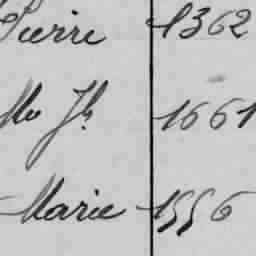 Pierre 1362
Mo Jh 1661
Marie 1556